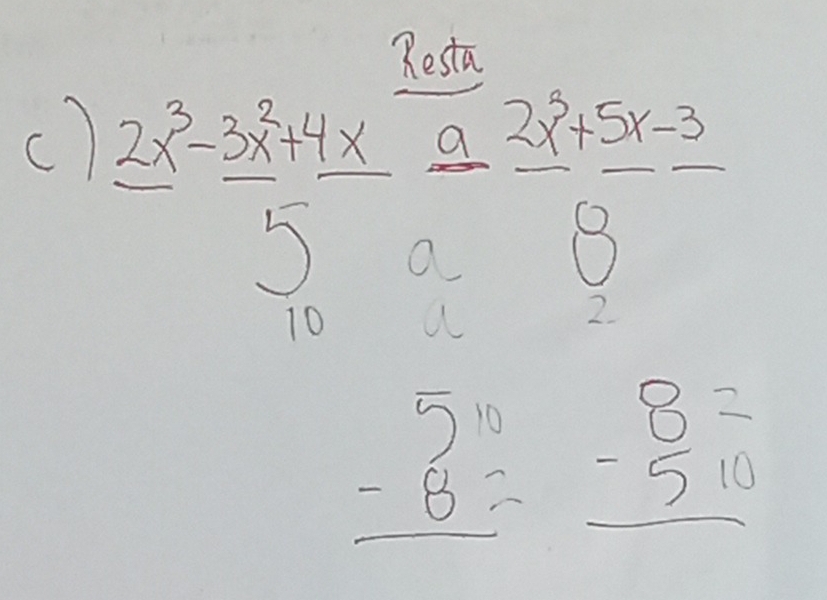 Resta
c) 2x³-3x²+4x a 2x³+5x-3
5 a 8
10 a 2
5 10 8 2
- 8 2 - 5 10